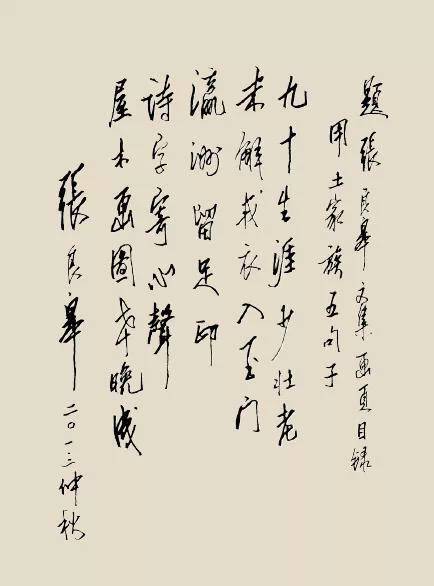 題張良皋文集画頁目録
用土家族五句子
九十生涯少壮老
未解衣入门
瀛洲留足印
詩字寄心聲
屋木画圖晚成
張良皋 二〇一三仲秋